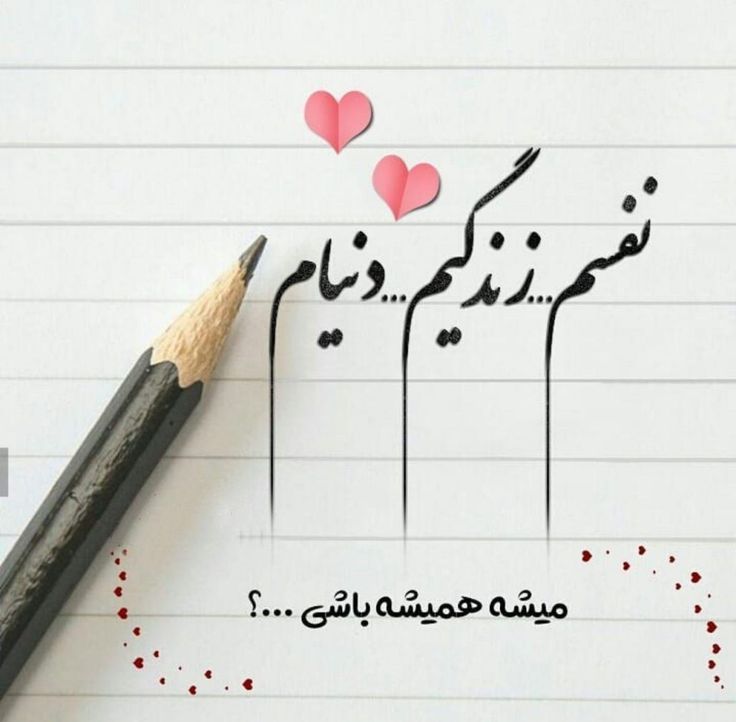 نفسم...زندگیم...دنیام
میشه همیشه باشی ...؟